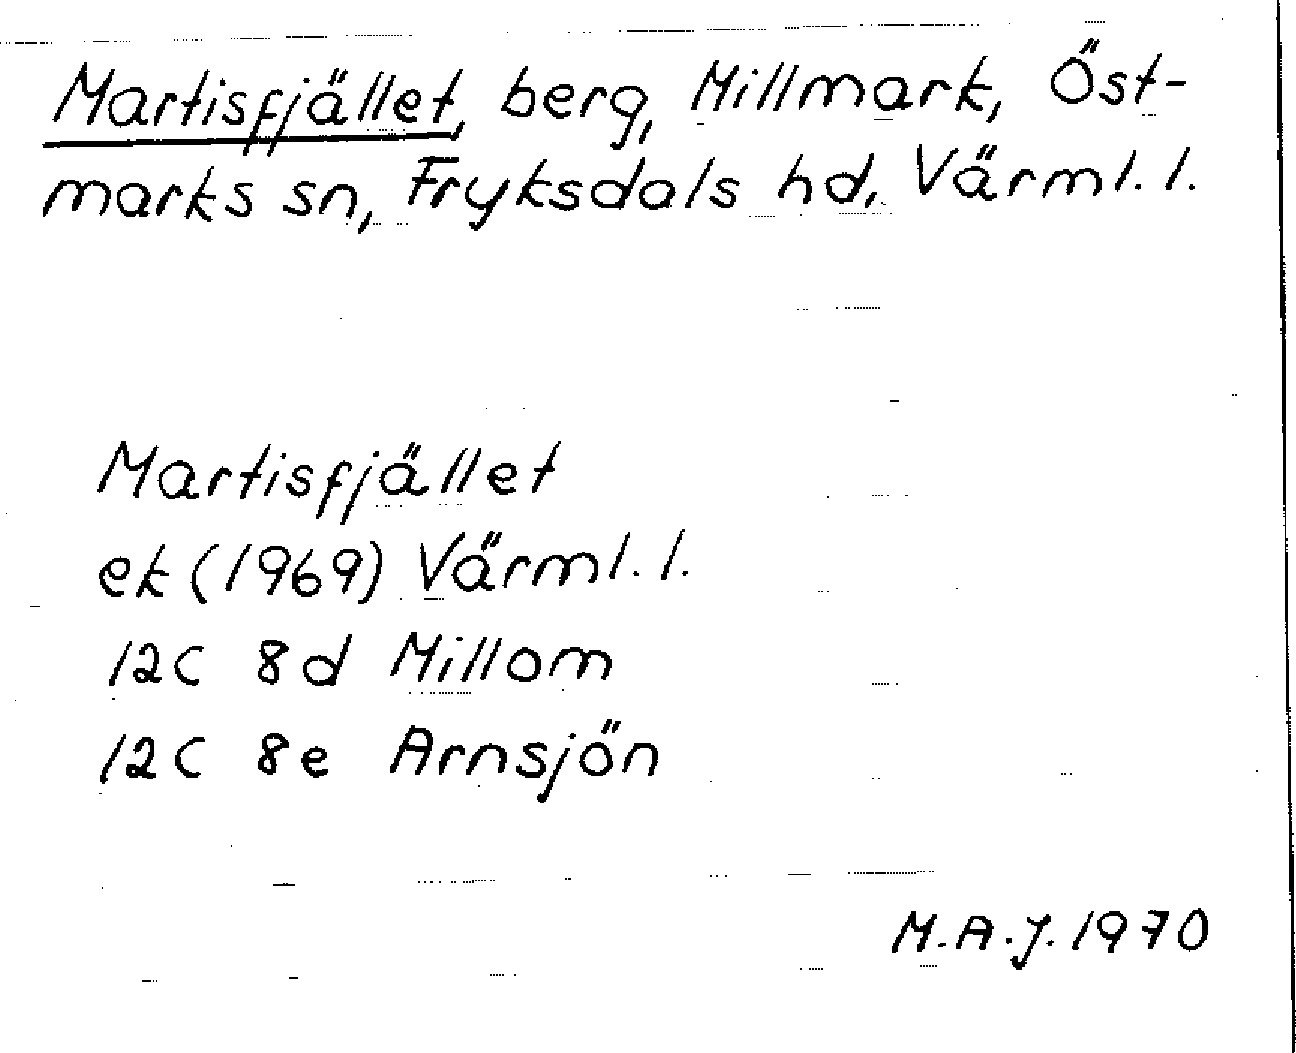 Martisfjället, berg, Millmark, Öst-
marks sn, Fryksdals hd, Värml. l.
Martisfjället
ek (1969) Värml. l.
12C 8d Millom
12C 8e Arnsjön
M.A.J. 1970